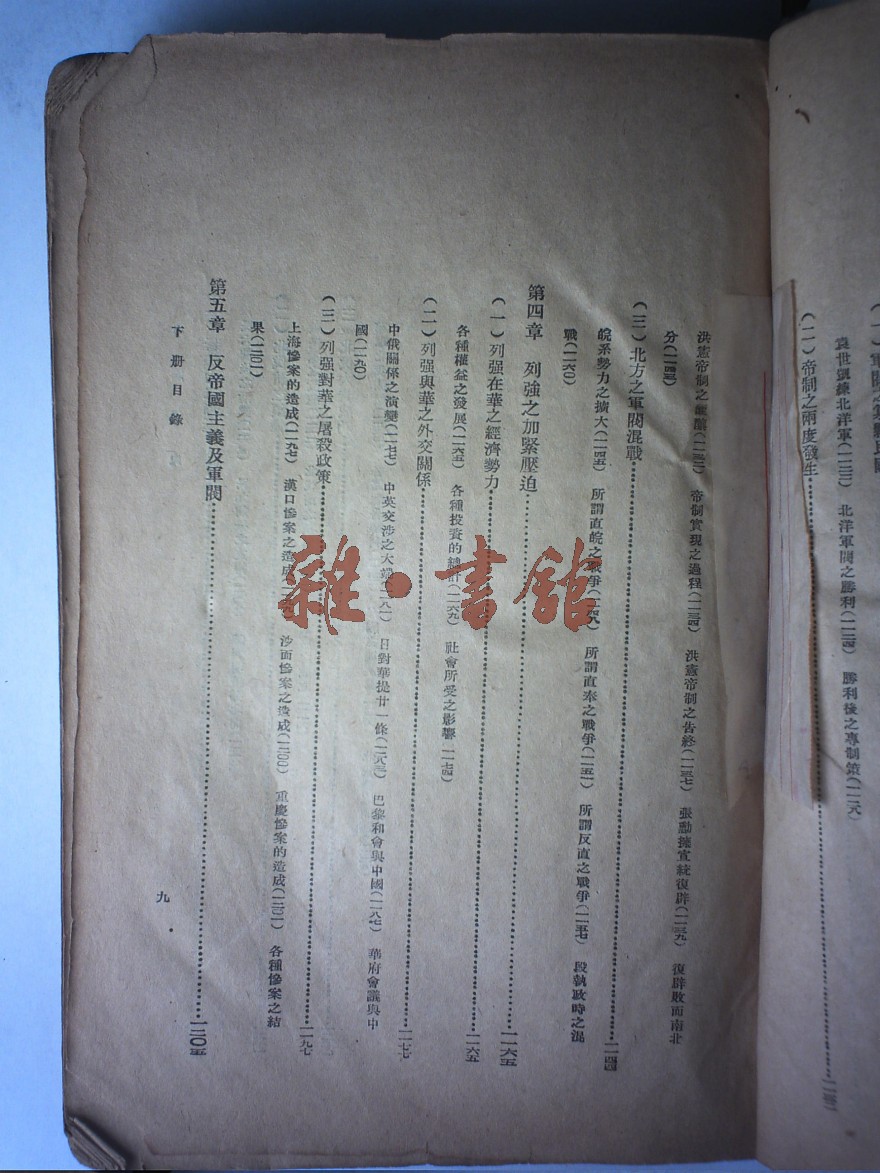 袁世凱練北洋軍(一一二三) 北洋軍閥之勝利(一一二四) 勝利後之專制策(一一二八)
(二)帝制之兩度發生
洪憲帝制之醞釀 帝制實現之過程(一一三四) 洪憲帝制之告終(一一三七) 張勳擁宣統復辟(一一三九) 復辟敗而南北
分
(三)北方之軍閥混戰……一一四四
皖系勢力之擴大(一一四五) 所謂直皖之戰爭(一一四九) 所謂直奉之戰爭(一一五二) 所謂反直之戰爭(一一五七) 段執政時之混
戰(一一六〇)
第四章 列強之加緊壓迫……一一六五
(一)列强在華之經濟勢力……一一六五
各種權益之發展(一一六五) 各種投資的總計(一一六九) 社會所受之影響 一一七四)
(二)列强與華之外交關係……一一七七
中俄關係之演變(一一七七) 中英交涉之大端(一一八一) 日對華提廿一條(一一八三) 巴黎和會與中國(一一八七) 華府會議與中
國(一一九〇)
(三)列强對華之屠殺政策……一一九七
上海慘案的造成(一一九七) 漢口慘案之造成(一一九九) 沙面慘案之造成(一二〇〇) 重慶慘案的造成(一二〇二) 各種慘案之結
果(一二〇三)
第五章 反帝國主義及軍閥……一二〇五
下册目錄
九
雜·書館